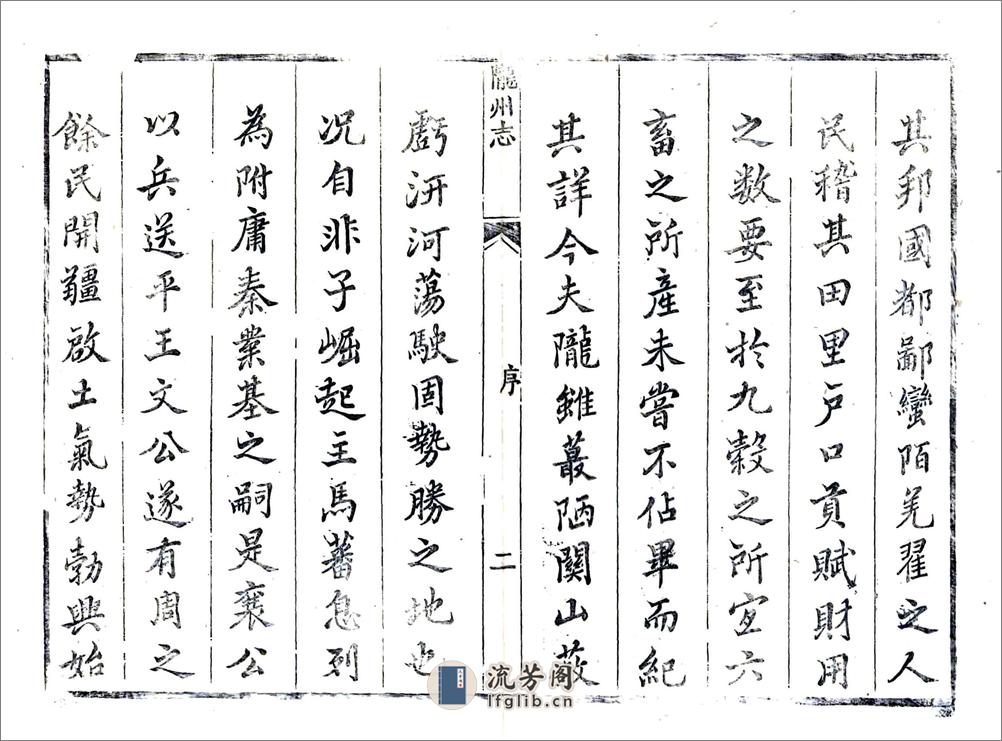 其邦國都鄙蠻陌羌翟之人
民稽其田里户口貢賦財用
之数要至於九穀之所宜六
畜之所產未嘗不佔畢而紀
其詳今夫隴雖蕞陋關山蔽
隴州志
序
二
虧汧河蕩駛固勢勝之地也
况自非子崛起主馬蕃息列
為附庸秦業基之嗣是襄公
以兵送平王文公遂有周之
餘民開疆啟土氣勢勃興始
流芳阁
lfglib.cn